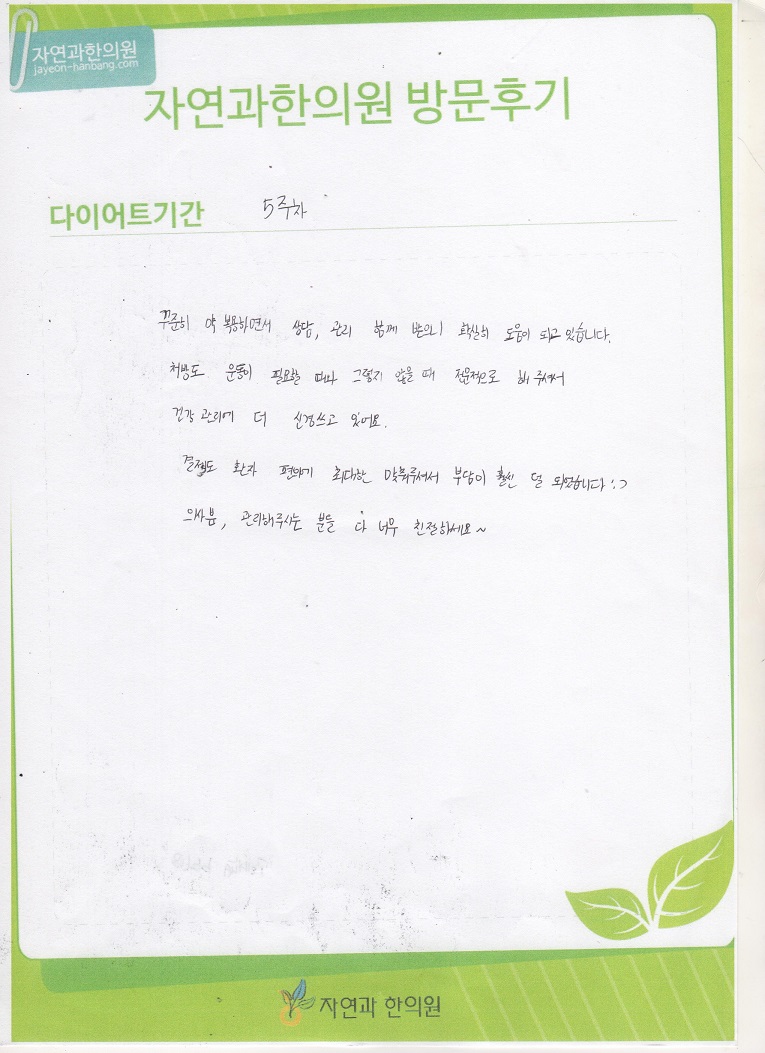 자연과한의원
jayeon-hanbang.com
자연과한의원 방문후기
다이어트기간 5주차
꾸준히 약 복용하면서 상담, 관리 함께 받으니 확실히 도움이 되고 있습니다.
처방도 운동이 필요할 때와 그렇지 않을 때 전문적으로 해 주셔서
건강 관리에 더 신경쓰고 있어요.
결제도 환자 편의가 최대한 맞춰주셔서 부담이 훨씬 덜 되었습니다 :>
의사분, 관리해주시는 분들 다 너무 친절하세요~
자연과 한의원